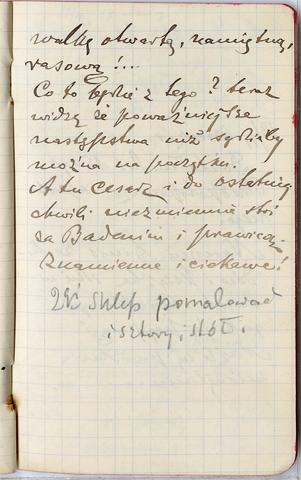 walkę otwartą, namiętną,
rasową!...
Co to będzie z tego? teraz
widzę że poważniejsze
następstwa niż sądziłby
można na początku.
A tu cesarz i do ostatniej
chwili niezmiennie stoi
za Badenim i prawicą,
znamienne i ciekawe!
sklep pomalować
i sztory, i stół.